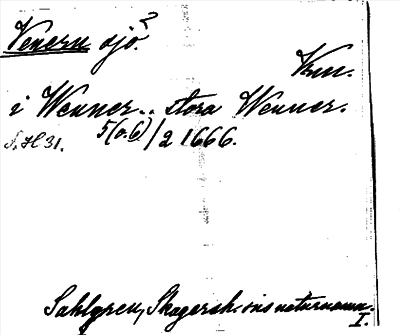 Venern sjö?
Vrm.
i Wenner.. stora Wenner.
S. H 31. 5(o.6)/2 1666.
Sahlgren, Skagersh. ons naturnamn.
I.